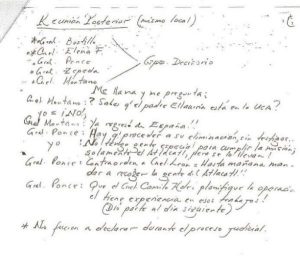 Reunión Posterior (mismo local)
* Gral. Bustillo
* Cnel. Elena F.
. Gral. Ponce
. Gral. Zepeda
. Cnel. Montano
Gpo. Decisorio
Me llama y me pregunta;
Cnel Montano: ? Sabes q' el padre Ellacuría está en la UCA?
yo = ¡NO!
Cnel Montano: Ya regresó de España!!
Gral. Ponce: Hay q' proceder a su eliminación, sin testigos...
yo : No tengo gente especial para cumplir la misión;
solamente el Atlacatl, pero se lo llevan!
Gral. Ponce: Contraorden a Cnel León = Hasta mañana man-
dar a recoger la gente del Atlacatl!!
Gral. Ponce: Que el Cnel Camilo Hdez. planifique la operación
el tiene experiencia en esos trabajos!
(Dio parte al día siguiente)
* No fueron a declarar durante el proceso judicial.